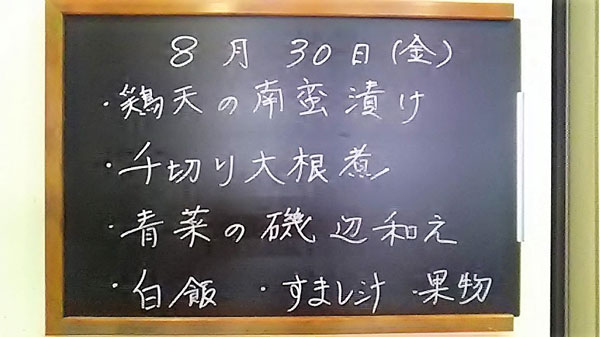 8月30日(金)
・鶏天の南蛮漬け
・千切り大根煮
・青菜の磯辺和え
・白飯 ・すまし汁 ・果物